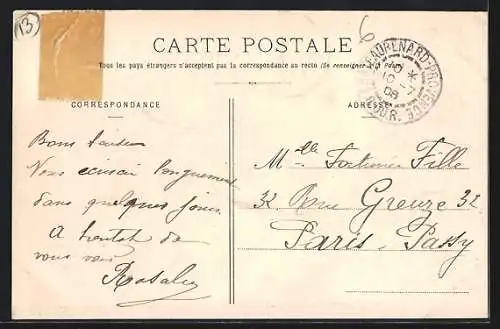 13
6
CARTE POSTALE
Tous les pays étrangers n'acceptent pas la correspondance au recto (Se renseigner à la Poste)
CORRESPONDANCE
ADRESSE
RENARD-PROVENCE
08
Bons
Vous écrirai longuement
dans quelques jours
A bientôt de
vous voir
Rosalie
Mlle Fortunée Fille
32 Rue Greuze 32
Paris-Passy